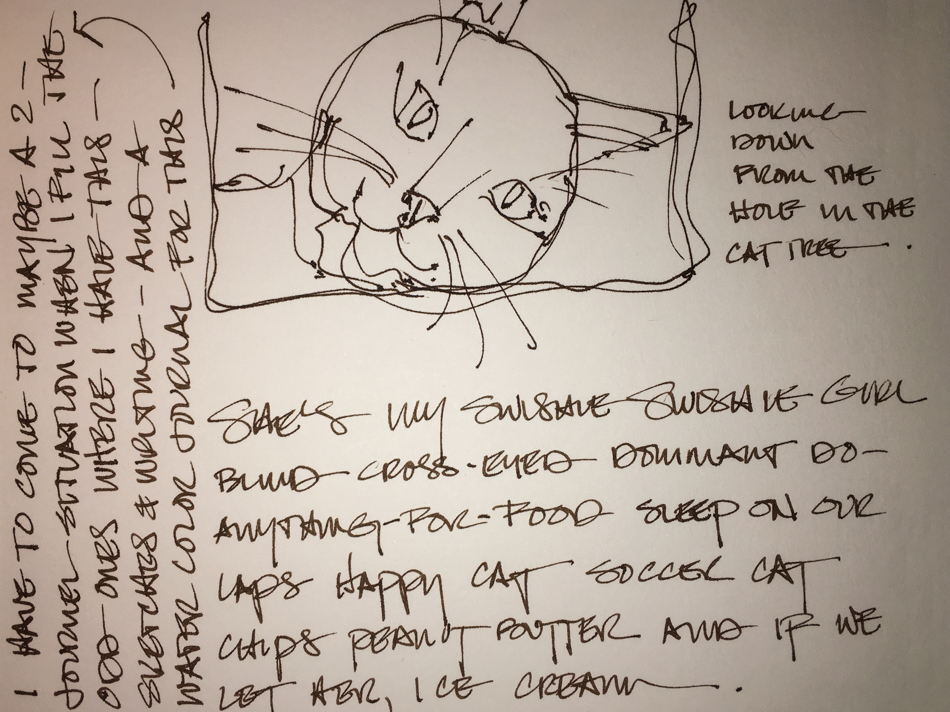 LOOKING
DOWN
FROM THE
HOLE IN THE
CAT TREE.
SHE'S MY SWISHIE SWISHIE GIRL
BLIND CROSS-EYED DOMINANT DO-
ANYTHING-FOR-FOOD SLEEP ON OUR
LAPS HAPPY CAT SOCCER CAT
CHIPS PEANUT BUTTER AND IF WE
LET HER, ICE CREAM.
I HAVE TO COME TO MAYBE A 2-
JOURNEL SITUATION WHEN I FILL THE
ODD ONES WHERE I HAVE THIS —
SKETCHES & WRITING - AND A
WATER COLOR JOURNAL FOR THIS